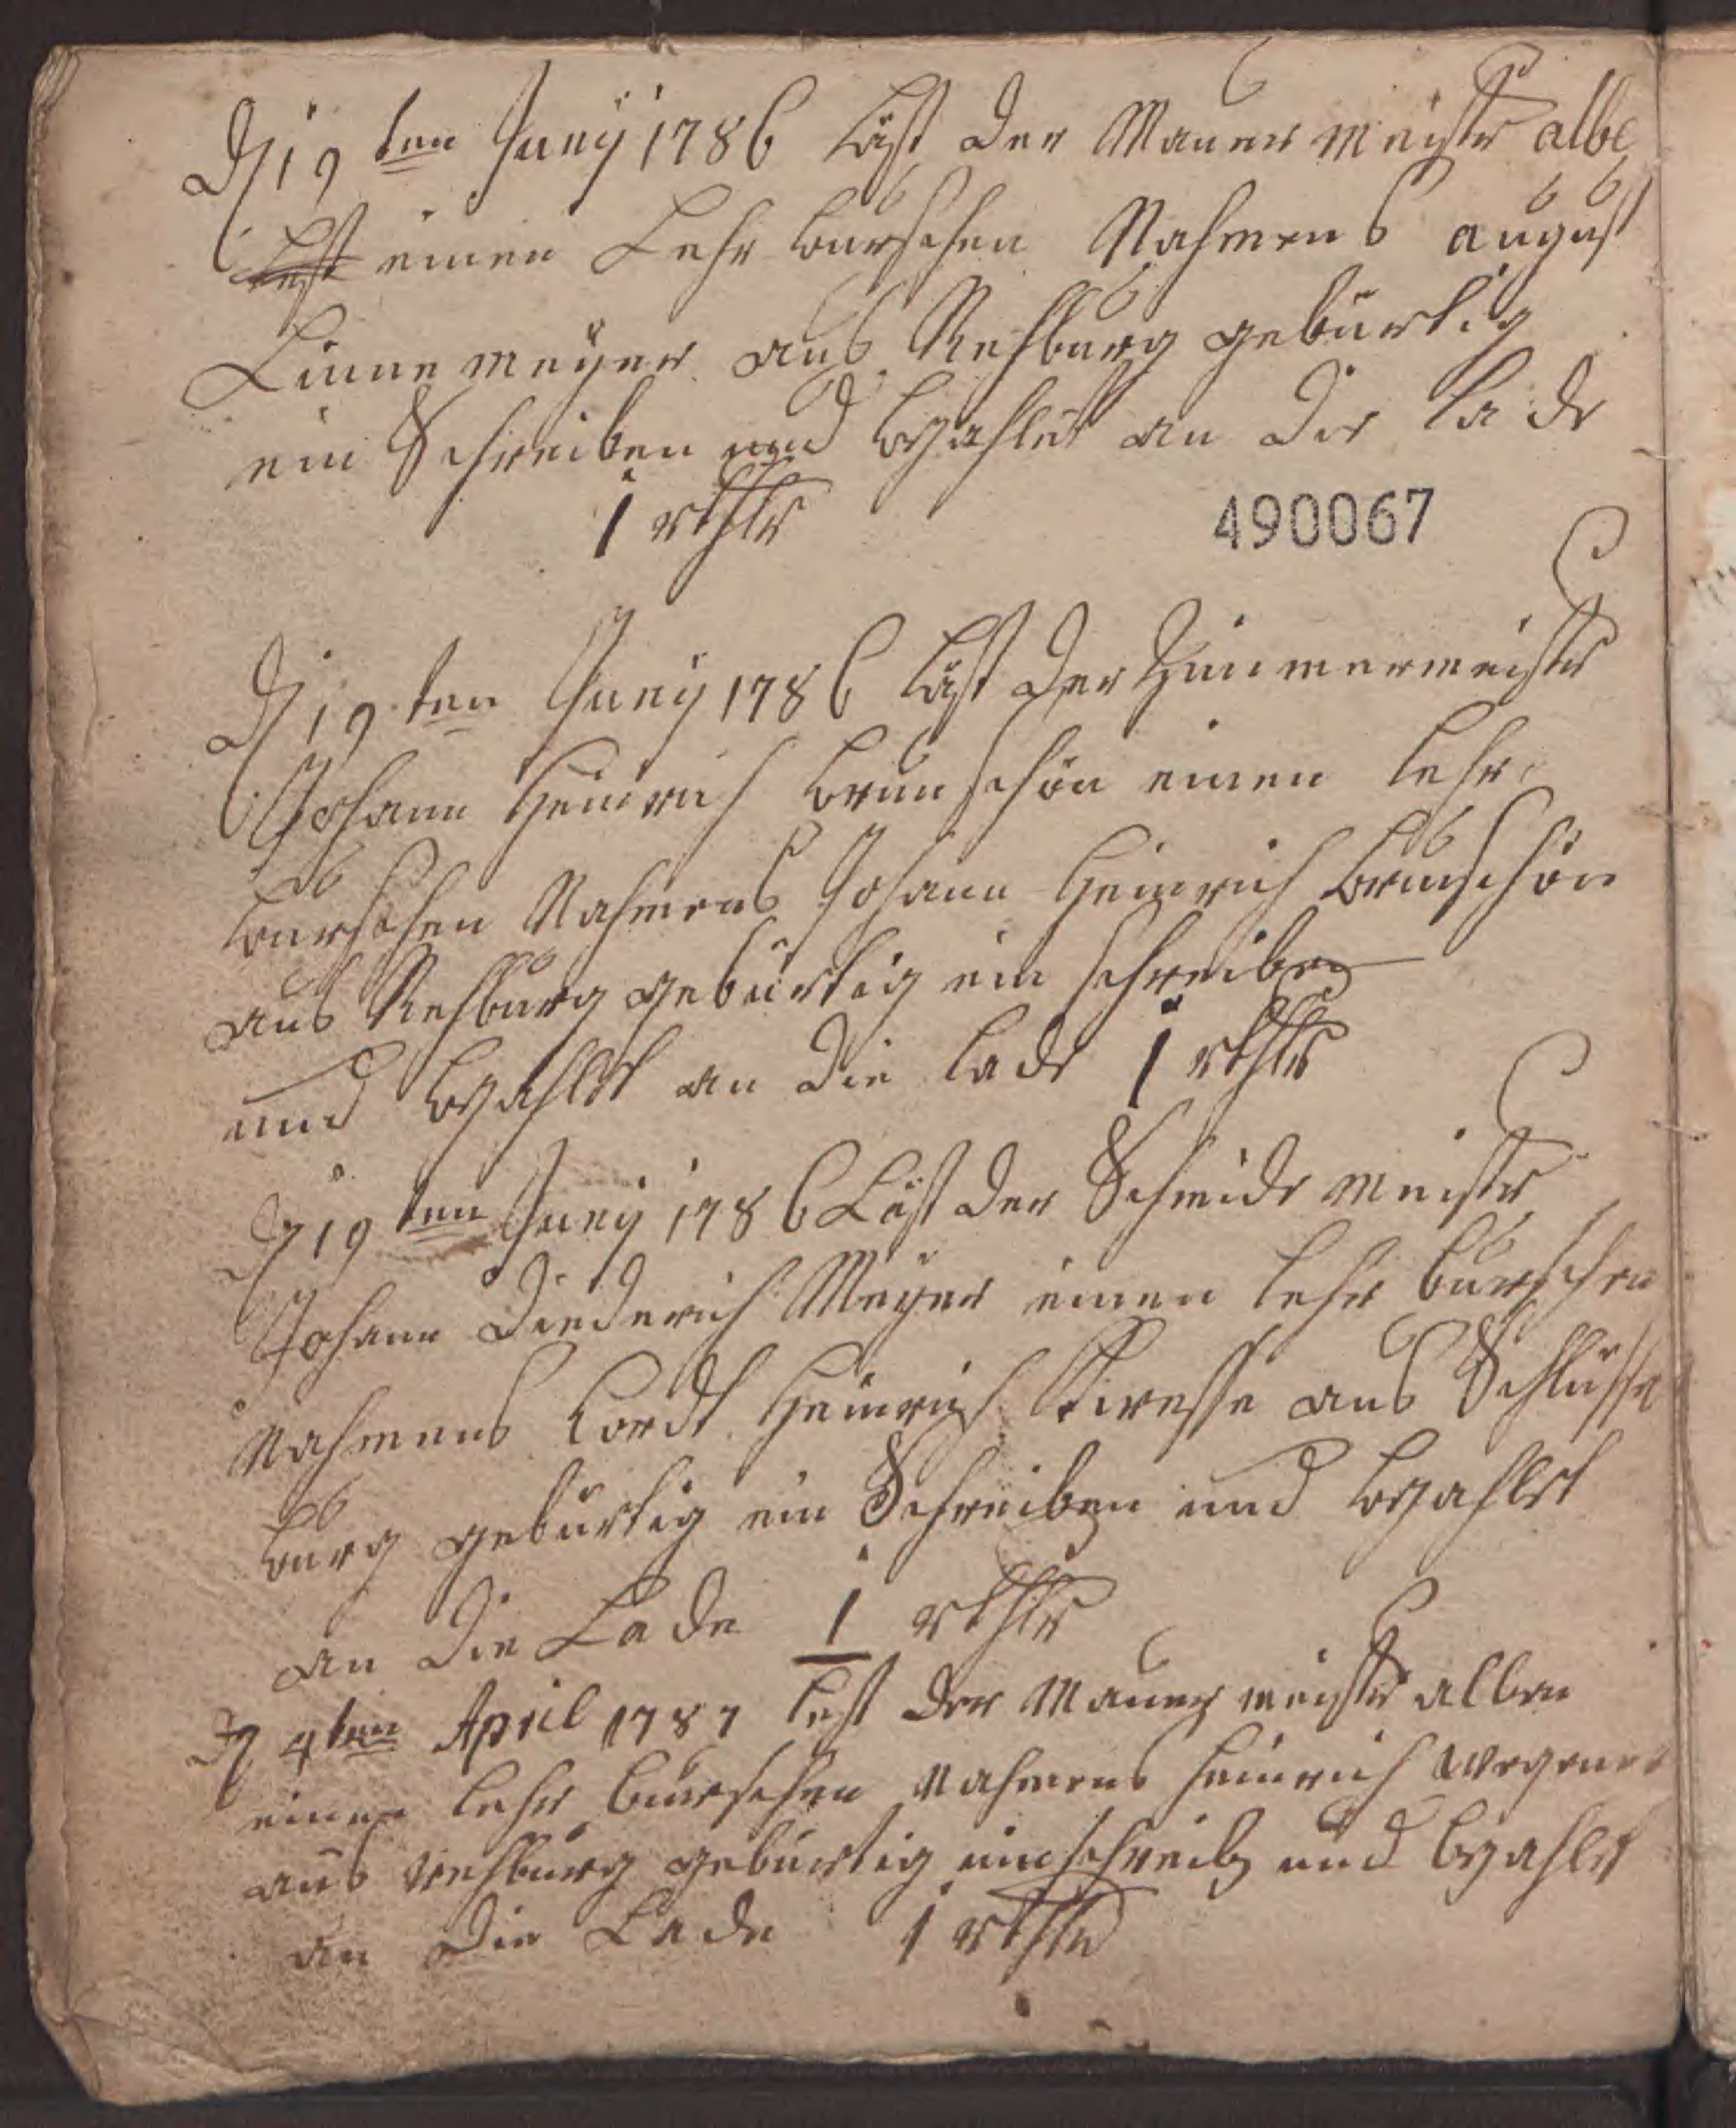 D 19ten Juny 1786 Läst der Mauer Meister albe
Lest einen Lehr burschen Nahmens august
Linne meyer aus Rehburg gebürtig
ein Schreiben und bezahlet an die Lade
1 rthlr
490067
D 19ten Juny 1786 Läst der Zimmermeister
Johann Heinrich brunschön einen Lehr
burschen Nahmens Johann Heinrich brunschön
aus Rehburg gebürtig ein schreiben
und bezahlet an die Lade 1 rthlr
D 19ten Juny 1786 Läst der Schmide Meister
Johann Diederich Meyer einen Lehr burschen
Nahmens Cordt Heinrich aus Schlüsse
burg gebürtig ein Schreiben und bezahlet
an die Lade 1 rthlr
D 4ten April 1787 lest der Mauer meister alben
einen Lehr burschen Nahmens Heinrich Wegener
aus rehburg gebürtig ein schreiben und bezahlet
an die Lade 1 rthlr